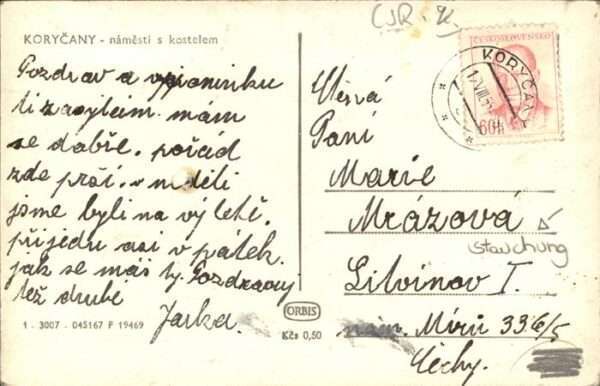 ČSR
KORYČANY - náměstí s kostelem
Pozdrav a vzpomínku
ti zasýlám. mám
se dobře. pořád
zde prší. v neděli
jsme byli na výletě.
přijedu asi v pátek.
jak se máš ty. Pozdravuj
též druhé
Jarka.
1 - 3007 - 045167 P 19469
ORBIS
Kčs 0,50
ČESKOSLOVENSKO
KORYČANY
60h
Ctěná
Paní
Marie
Mrázová
Stauchung
Litvínov I.
nám. Míru 336/5
Čechy.